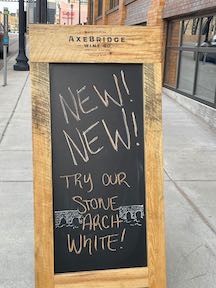 AXEBRIDGE
WINE CO
NEW!
NEW!
TRY OUR
STONE
ARCH
WHITE!